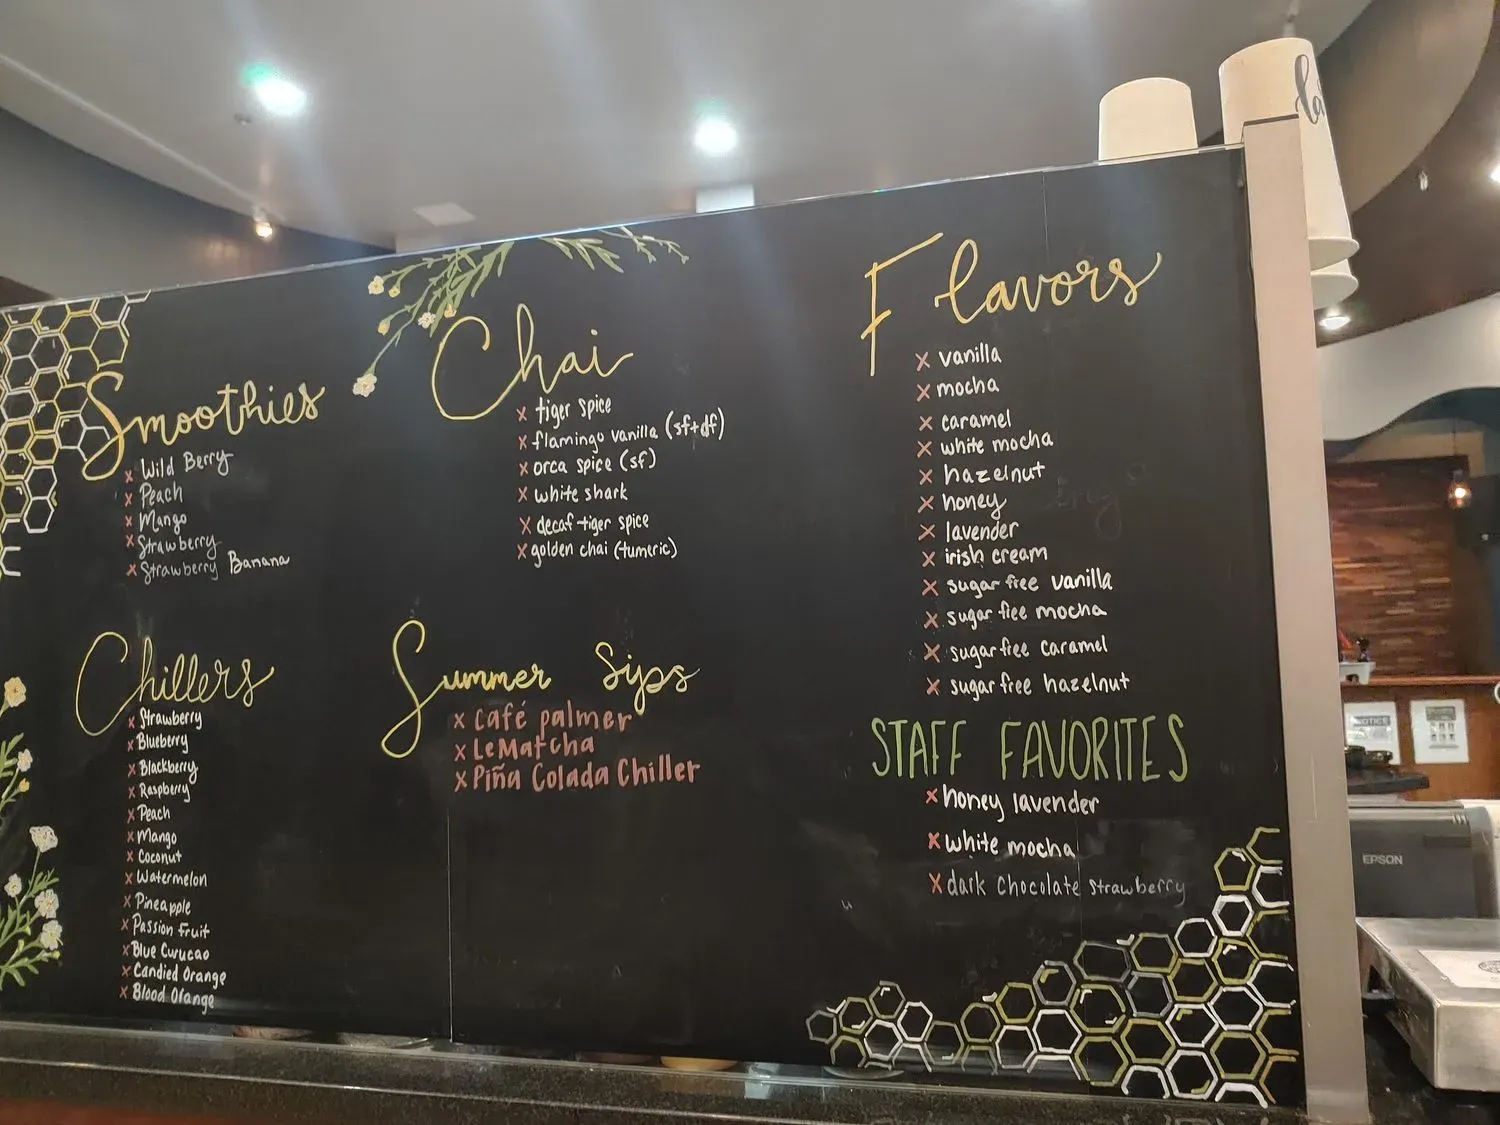 Smoothies
x Wild Berry
x Peach
x Mango
x Strawberry
x Strawberry Banana
Chillers
x Strawberry
x Blueberry
x Blackberry
x Raspberry
x Peach
x Mango
x Coconut
x Watermelon
x Pineapple
x Passion Fruit
x Blue Curucao
x Candied Orange
x Blood Orange
Chai
x tiger spice
x flamingo vanilla (sf+df)
x orca spice (sf)
x white shark
x decaf tiger spice
x golden chai (tumeric)
Summer Sips
x Café palmer
x LeMatcha
x Piña Colada Chiller
Flavors
x vanilla
x mocha
x caramel
x white mocha
x hazelnut
x honey
x lavender
x irish cream
x sugar free vanilla
x sugar free mocha
x sugar free caramel
x sugar free hazelnut
STAFF FAVORITES
x honey lavender
x white mocha
x dark chocolate strawberry
NOTICE
EPSON